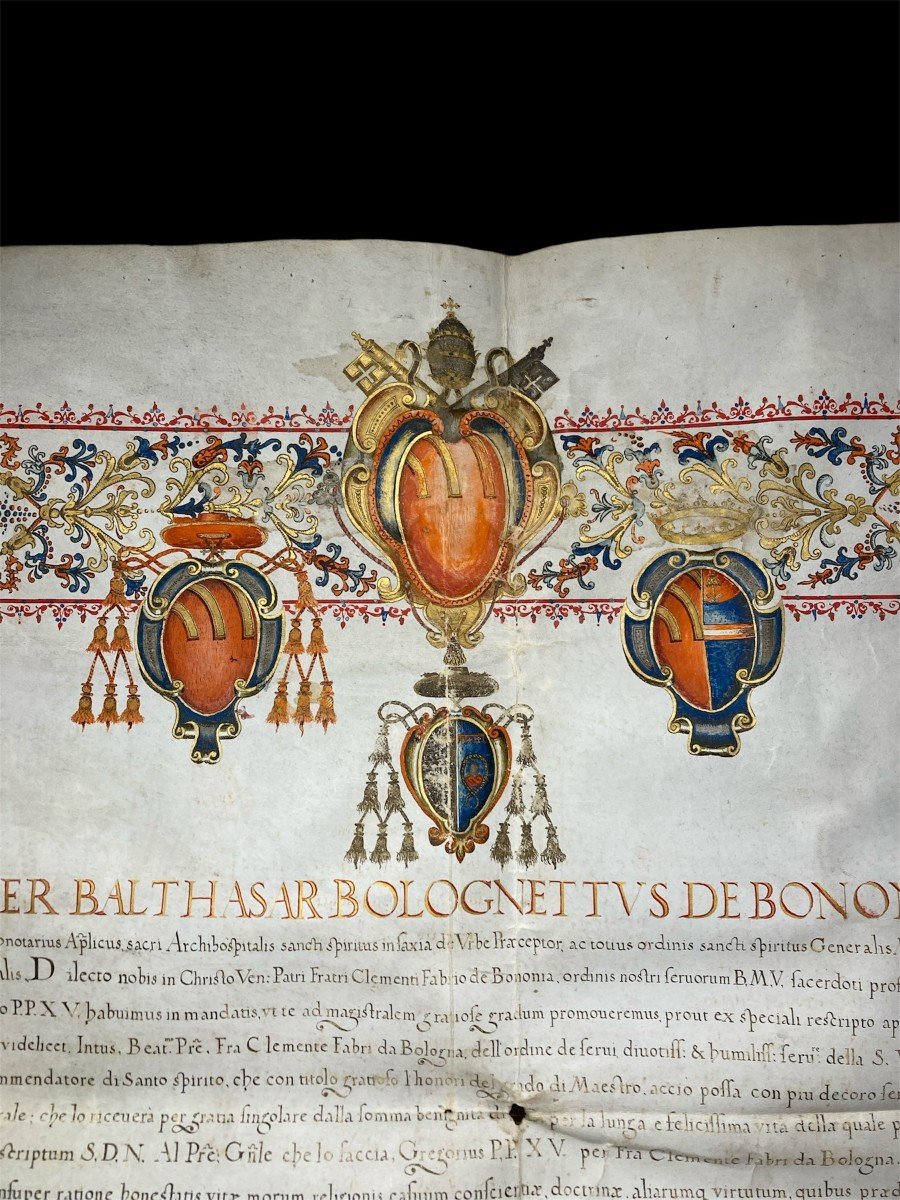 ER BALTHASAR BOLOGNETTVS DE BONO
onotarius Aplicus, sacri Archihospitalis sancti spiritus in saxia de Vrbe Præceptor, ac totius ordinis sancti spiritus Generalis
alis, Dilecto nobis in Christo Ven: Patri Fratri Clementi Fabrio de Bononia, ordinis nostri seruorum B.M.V. sacerdoti prof
o P.P. XV. habuimus in mandatis, vt te ad magistralem gratiose gradum promoueremus, prout ex speciali rescripto ap
videlicet, Intus, Beat.mo Prē, Fra Clemente Fabri da Bologna, dell'ordine de serui, diuotiss: & humiliss: seru.re della S. V
mmendatore di Santo spirito, che con titolo gratioso l'honori del grado di Maestro, acciò possa con piu decoro ser
rale; che lo riceuerà per gratia singolare dalla somma benignità di per la lunga e felicissima vita della quale p
scriptum S.D.N. Al Prē: Gñle che lo faccia, Gregorius P.P. XV. per Fra Clemente Fabri da Bologna.
nsuper ratione honestatis vitæ morum religionis casuum conscientiæ, doctrinæ, aliarumq virtutum, quibus præd